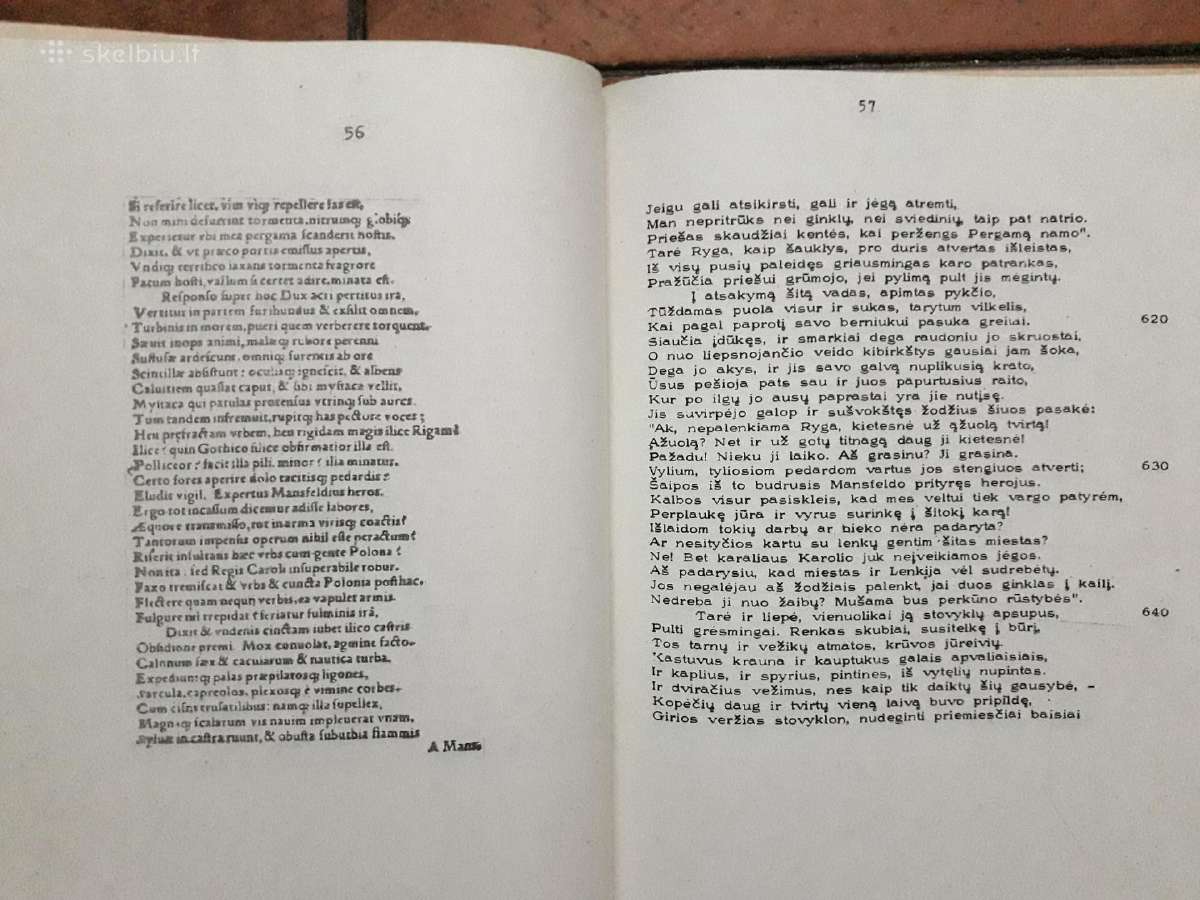 skelbiu.lt
56
Si referire licet, vim viq; repellere fas est,
Non mihi desuerint tormenta, nitrumq; globiq;
Experietur vbi mea pergama scanderit hostis.
Dixit, & vt præco portis emissus apertis,
Vndiq; terribco laxans tormenta fragrore
Pacum hosti, vallum si certet adire, minata est.
Responso super hoc Dux acri percitus ira,
Vertitur in partem furibundus & exsilit omnem,
Turbinis in morem, pueri quem verbere torquent.
Sævit inops animi, malæq; rubore perenni
Suffusæ ardescunt, omniq; furentis ab ore
Scintillæ absistunt: oculiq; ignescit, & albens
Caluitiem quassat caput, & sibi mystaca vellit,
Mystaca qui patulas protensus vtrinq; sub aures.
Tum tandem infremuit, rupitq; has pectore voces;
Heu prefractam vrbem, heu rigidam magis ilice Rigam!
Ilice? quin Gothico silice obfirmatior illa est.
Polliceor? facit illa pili. minor? illa minatur.
Certo fores aperire dolo tacitisq; pedardis?
Eludit vigil. Expertus Mansfeldius heros.
Ergo tot incassum dicemur adisse labores,
Æquore transmisso, tot in arma virisq; coactis?
Tantorum impensis operum nihil esse peractum?
Riserit insultans hæc vrbs cum gente Polona?
Non ita: sed Regis Caroli insuperabile robur.
Faxo tremiscat & vrbs & cuncta Polonia posthac.
Flectere quam nequij verbis, ea vapulet armis.
Fulgure ni trepidat? feriatur fulminis irâ.
Dixit & vndenis cinctam iubet ilico castris
Obsidione premi. Mox conuolat, agmine facto
Calonum fæx & cacularum & nautica turba.
Expediuntq; palas præpilatosq; ligones,
Sarcula, capreolos, plexosq; è vimine corbes.
Cum cistis trusatilibus: namq; illa supellex,
Magnaq; scalarum vis nauim impleuerat vnam,
Syluæ in castra ruunt, & obusta suburbia flammis
A Mans-
57
Jeigu gali atsikirsti, gali ir jėgą atremti,
Man nepritrūks nei ginklų, nei sviedinių, taip pat natrio.
Priešas skaudžiai kentės, kai peržengs Pergamą namo".
Tarė Ryga, kaip šauklys, pro duris atvertas išleistas,
Iš visų pusių paleidęs griausmingas karo patrankas,
Pražūčia priešui grūmojo, jei pylimą pult jis mėgintų.
Į atsakymą šitą vadas, apimtas pykčio,
Tūždamas puola visur ir sukas, tarytum vilkelis,
Kai pagal paprotį savo berniukui pasuka greitai. 620
Siaučia įdūkęs, ir smarkiai dega raudoniu jo skruostai,
O nuo liepsnojančio veido kibirkštys gausiai jam šoka,
Dega jo akys, ir jis savo galvą nuplikusią krato,
Ūsus pešioja pats sau ir juos papurtusius raito,
Kur po ilgų jo ausų paprastai yra jie nutįsę.
Jis suvirpėjo galop ir sušvokštęs žodžius šiuos pasakė:
"Ak, nepalenkiama Ryga, kietesnė už ąžuolą tvirtą!
Ąžuolą? Net ir už gotų titnagą daug ji kietesnė!
Pažadu! Nieku ji laiko. Aš grasinu? Ji grasina.
Vylium, tyliosiom pedardom vartus jos stengiuos atverti; 630
Šaipos iš to budrusis Mansfeldo prityręs herojus.
Kalbos visur pasiskleis, kad mes veltui tiek vargo patyrėm,
Perplaukę jūra ir vyrus surinkę į šitokį karą!
Išlaidom tokių darbų ar bieko nėra padaryta?
Ar nesityčios kartu su lenkų gentim šitas miestas?
Ne! Bet karaliaus Karolio juk neįveikiamos jėgos.
Aš padarysiu, kad miestas ir Lenkija vėl sudrebėtų.
Jos negalėjau aš žodžiais palenkt, jai duos ginklas į kailį.
Nedreba ji nuo žaibų? Mušama bus perkūno rūstybės".
Tarė ir liepė, vienuolikai ją stovyklų apsupus, 640
Pulti grėsmingai. Renkas skubiai, susitelkę į būrį,
Tos tarnų ir vežikų atmatos, krūvos jūreivių.
Kastuvus krauna ir kauptukus galais apvaliaisiais,
Ir kaplius, ir spyrius, pintines, iš vytelių nupintas.
Ir dviračius vežimus, nes kaip tik daiktų šių gausybė, -
Kopėčių daug ir tvirtų vieną laivą buvo pripildę,
Girios veržias stovyklon, nudeginti priemiesčiai baisiai